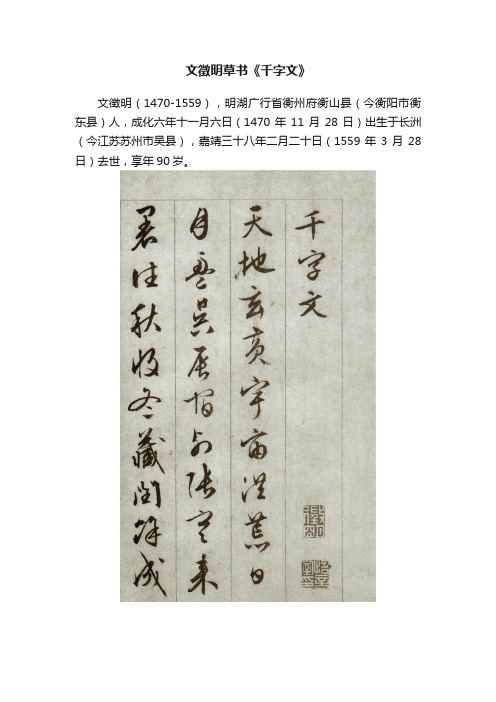 文徵明草书《千字文》
文徵明（1470-1559），明湖广行省衡州府衡山县（今衡阳市衡
东县）人，成化六年十一月六日（1470 年 11 月 28 日）出生于长洲
（今江苏苏州市吴县），嘉靖三十八年二月二十日（1559 年 3 月 28
日）去世，享年 90 岁。
千字文
天地玄黃宇宙洪荒日
月盈昃辰宿列張寒来
暑往秋收冬藏閏餘成